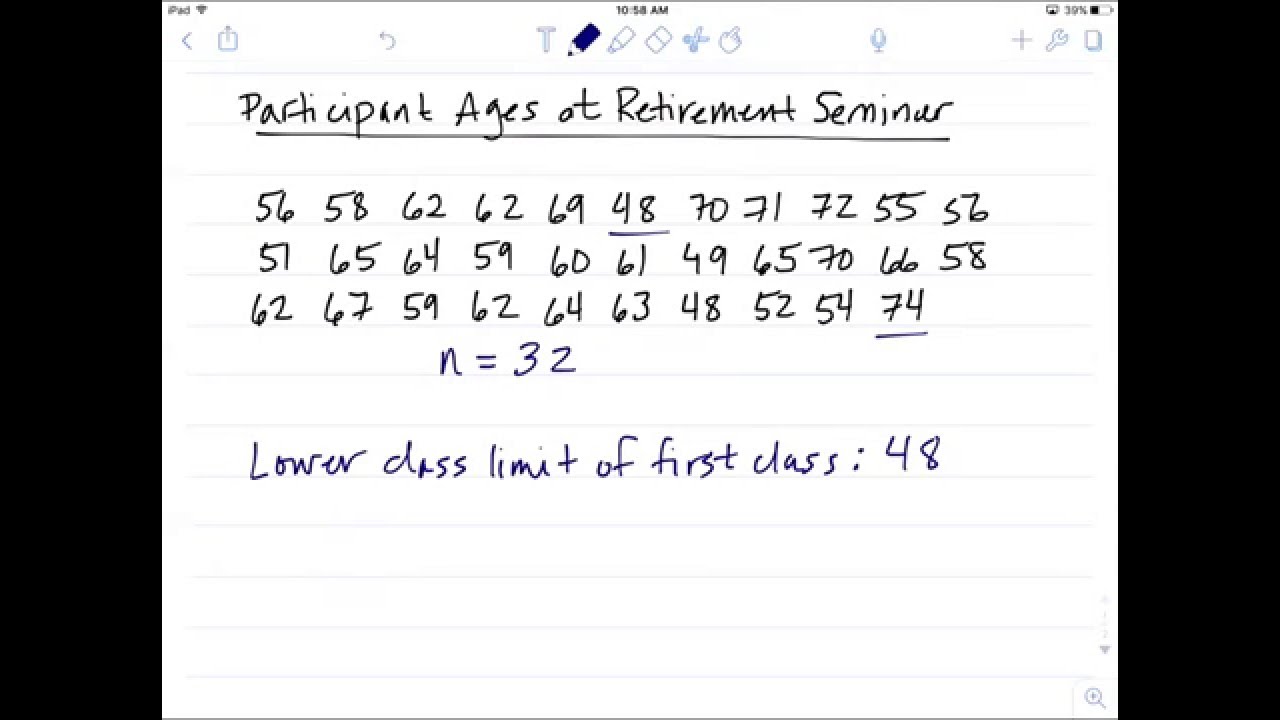 iPad 10:58 AM 39%
T
Participant Ages at Retirement Seminar
56 58 62 62 69 48 70 71 72 55 56
51 65 64 59 60 61 49 65 70 66 58
62 67 59 62 64 63 48 52 54 74
n = 32
Lower class limit of first class: 48